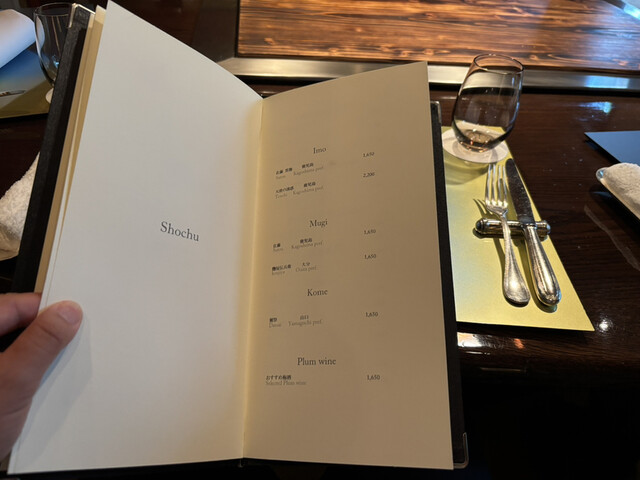 Shochu
Imo
佐藤 黒麹 鹿児島 1,650
Sato Kagoshima pref
鹿児島 2,200
Kagoshima pref
Mugi
佐藤 鹿児島 1,650
Sato Kagoshima pref
大分 1,650
Oita pref
Kome
獺祭 山口 1,650
Dassai Yamaguchi pref
Plum wine
おすすめ梅酒 1,650
Selected Plum wine